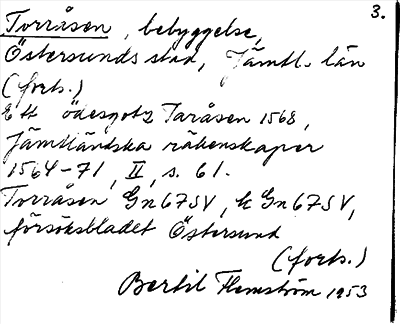 3.
Torråsen, bebyggelse,
Östersunds stad, Jämtl. län
(forts.)
Ett ödesgotz Taråsen 1568,
Jämtländska räkenskaper
1564-71, II, s. 61.
Torråsen Gn67SV, k Gn67SV,
försöksbladet Östersund
(forts.)
Bertil Flemström 1953